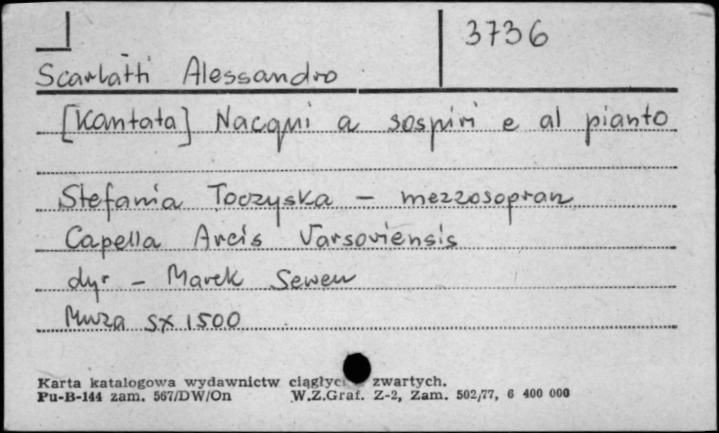 3736
Scarlatti Alessandro
[Kantata] Nacqui a sospiri e al pianto
Stefania Toczyska - mezzosopran
Capella Arcis Varsoviensis
dyr - Marek Sewen
Muza SX 1500
Karta katalogowa wydawnictw ciągłyc zwartych.
Pu-B-144 zam. 567/DW/On W.Z.Graf. Z-2, Zam. 502/77, 6 400 000